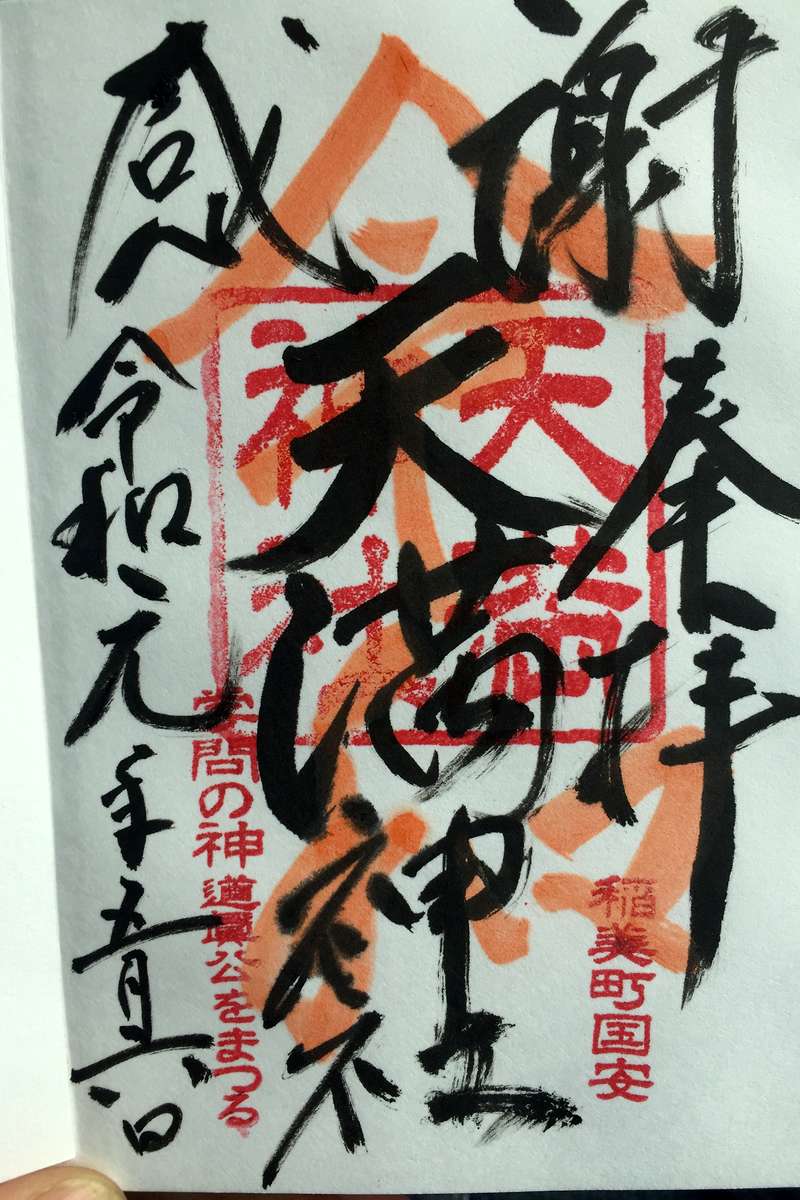 感謝
奉拝
天満神社
天満神社
令和
稲美町国安
学問の神 道眞公をまつる
令和元年五月六日